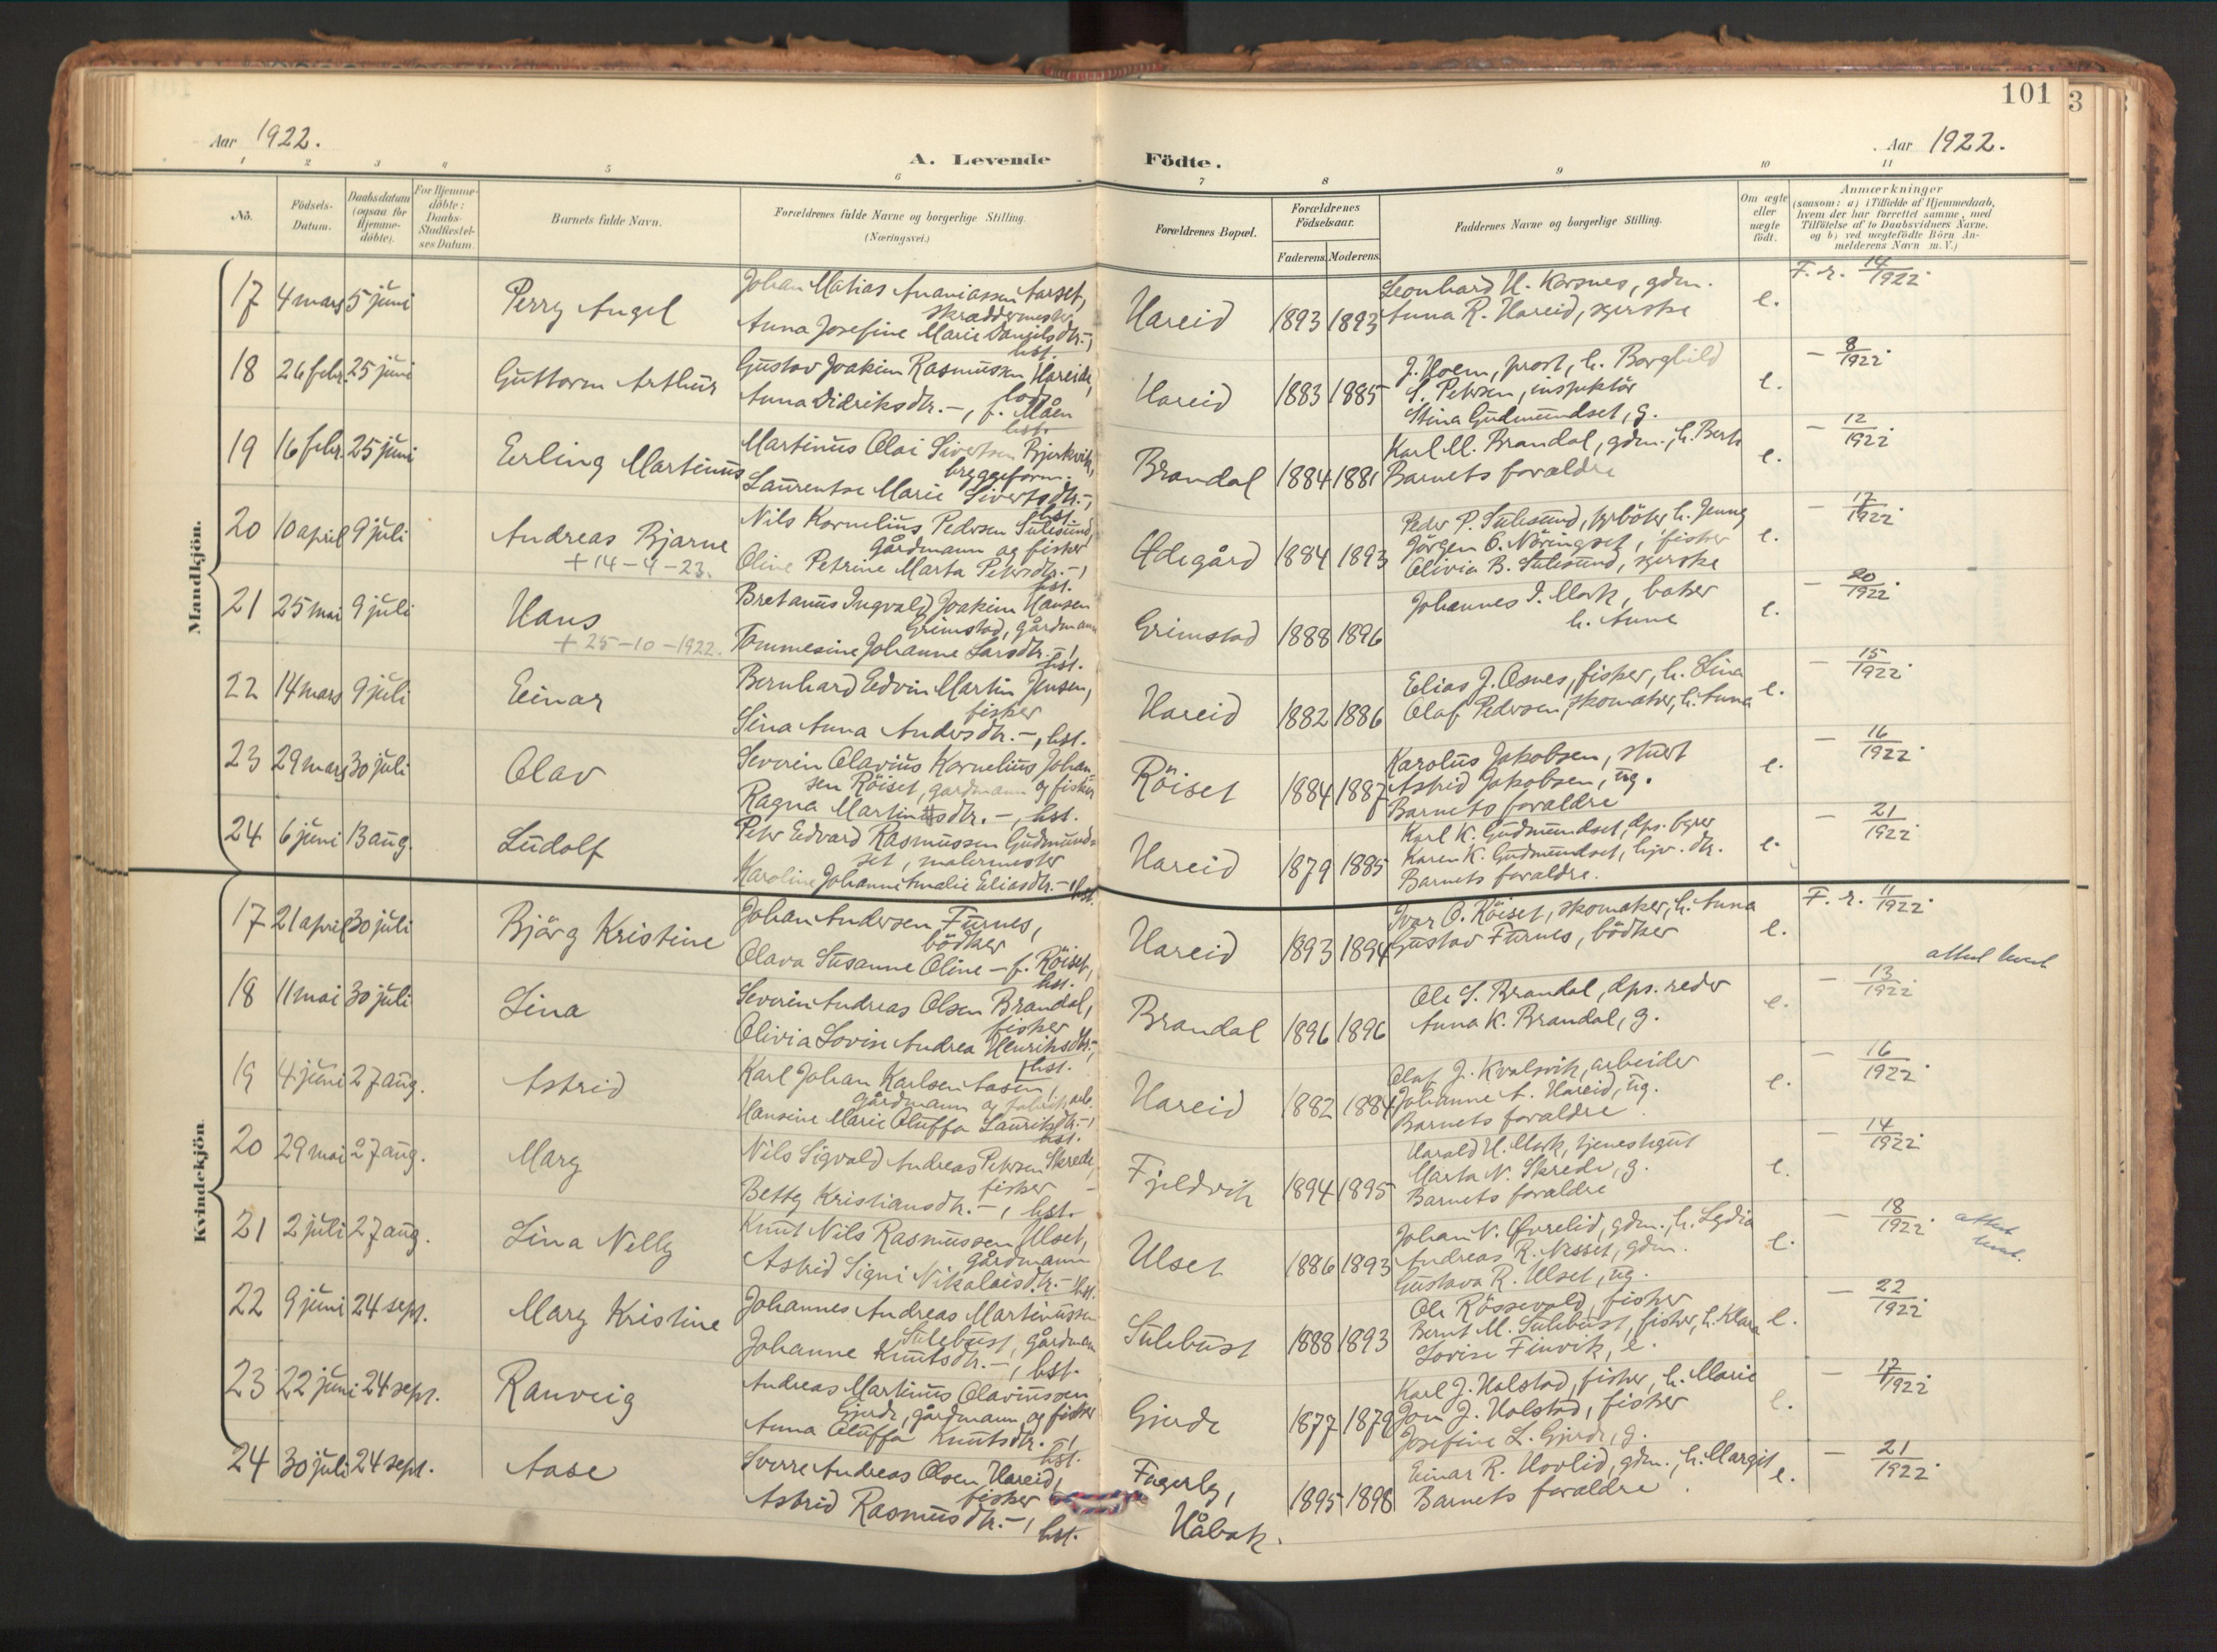 101
3
Aar 1922.
A. Levende Födte.
Aar 1922.
1 2 3 4 5 6 7 8 9 10 11
No.
Födsels-Datum.
Daabsdatum (ogsaa for Hjemmedöbte).
For Hjemmedöbte: Daabs-Stadfæstelses Datum.
Barnets fulde Navn.
Forældrenes fulde Navne og borgerlige Stilling. (Næringsvei.)
Forældrenes Bopæl.
Forældrenes Födselsaar.
Faderens. Moderens.
Faddernes Navne og borgerlige Stilling.
Om ægte eller uægte födt.
Anmærkninger (saasom: a) i Tilfælde af Hjemmedaab, hvem der har forrettet samme, med Tilföielse af to Daabsvidners Navne, og b) ved uægtefödte Börn Anmelderens Navn m. V.)
Mandkjön.
17 4 mars 5 juni Perry Angel
Johan Matias Ananiassen Aarset,
skræddermester
Anna Josefine Marie Danielsdtr.-,
hst.
Hareid 1893 1893
Leonhard H. Karsnes, gdm.
Anna R. Hareid, syerske
e. F. r. 14/1922.
18 26 febr. 25 juni Guttorm Arthur
Gustav Joakim Rasmussen Hareide,
lods
Anna Didriksdtr. -, f. Måen
hst.
Hareid 1883 1885
J. Hoem, prost, h. Borghild
S. Petersen, inspektör
Stina Gudmundset, g.
e. - 8/1922.
19 16 febr. 25 juni Erling Martinus
Martinus Olai Sivertsen Bjerkvik,
bryggeform.
Laurentse Marie Sivertsdtr.-,
hst.
Brandal 1884 1881
Karl M. Brandal, gdm., h. Berte
Barnets foraldre
e. - 12/1922.
20 10 april 9 juli Andreas Bjarne
+ 14-4-23.
Nils Kornelius Pedersen Sulesund,
gårdmann og fisker
Oline Petrine Marta Petersdtr.-,
hst.
Ødegård 1884 1893
Peder P. Sulesund, h. Jenny
Jörgen O. Nöringset, fisker
Olivia B. Sulesund, syerske
e. - 17/1922.
21 25 mai 9 juli Hans
+ 25-10-1922.
Bretanus Ingvald Joakim Hansen
Grimstad, gårdmann
Tommesine Johanne Larsdtr.-,
hst.
Grimstad 1888 1896
Johannes I. Mork, baker
h. Anne
e. - 20/1922.
22 14 mars 9 juli Einar
Bernhard Edvin Martin Jensen,
fisker
Lina Anna Andersdtr.-, hst.
Hareid 1882 1886
Elias J. Osnes, fisker, h. Lina
Olaf Pedersen, skomaker, h. Anna
e. - 15/1922.
23 29 mars 30 juli Olav
Severin Olavius Kornelius Johan-
sen Röiset, gardmann og fisker
Ragna Martinusdtr. -, hst.
Röiset 1884 1887
Karolus Jakobsen, stuert
Astrid Jakobsen, ug.
Barnets foraldre
e. - 16/1922.
24 6 juni 13 aug. Ludolf
Peter Edvard Rasmussen Gudmund-
set, malermester
Karoline Johanne Amalie Eliasdtr.-, hst.
Hareid 1879 1885
Karl K. Gudmundset, dps. fyrer
Karen K. Gudmundset, hjv. dtr.
Barnets foraldre.
e. - 21/1922.
Kvindekjön
17 21 april 30 juli Bjärg Kristine
Johan Andersen Furnes,
bödker
Olava Susanne Oline - f. Röiset,
hst.
Hareid 1893 1894
Ivar O. Röiset, skomaker, h. Anna
Gustav Furnes, bödker
e. F. r. 11/1922.
attest
18 11 mai 30 juli Lina
Severin Andreas Olsen Brandal,
fisker
Olivia Lovise Andrea Henriksdtr.-,
hst.
Brandal 1896 1896
Ole S. Brandal, dps. reder
Anna K. Brandal, g.
e. - 13/1922.
19 4 juni 27 aug. Astrid
Karl Johan Karlsen Aasen,
gårdmann og fabrikarb.
Hansine Marie Oluffa Lauritsdtr.-,
hst.
Hareid 1882 1884
Olaf J. Kvalsvik, arbeider
Johanne A. Hareid, ug.
Barnets foraldre
e. - 16/1922.
20 29 mai 27 aug. Mary
Nils Sigvald Andreas Petersen Skrede,
fisker
Betty Kristiansdtr.-, hst.
Fjeldvik 1894 1895
Harald H. Mork, tjenestegut
Marta N. Skrede, g.
Barnets foraldre
e. - 14/1922.
21 2 juli 27 aug. Lina Nelly
Knut Nils Rasmussen Ulset,
gårdmann
Astrid Signi Nikolaisdtr.- hst.
Ulset 1886 1893
Johan N. Øvrelid, gdm., h. Lydia
Andreas R. Nesset, gdm.
Gustava R. Ulset, ug.
e. - 18/1922.
attest
22 9 juni 24 sept. Mary Kristine
Johannes Andreas Martinussen
Sulebust, gårdmann
Johanne Knutsdtr.-, hst.
Sulebust 1888 1893
Ole Rössevold, fisker
Bernt M. Sulebust, fisker, h. Klara
Lovise Finvik, e.
e. - 22/1922.
23 22 juni 24 sept. Ranveig
Andreas Martinus Olavinussen
Gjerde, gårdmann og fisker
Anna Oluffa Knutsdtr.-,
hst.
Gjerde 1877 1879
Karl J. Halstad, fisker, h. Marie
Jon J. Halstad, fisker
Josefine L. Gjerde, g.
e. - 17/1922.
24 30 juli 24 sept. Aase
Sverre Andreas Olsen Hareid,
fisker
Astrid Rasmusdtr.-, hst.
Fagerly,
Håbak.
1895 1898
Einar R. Hovlid, gdm., h. Margit
Barnets foraldre
e. - 21/1922.